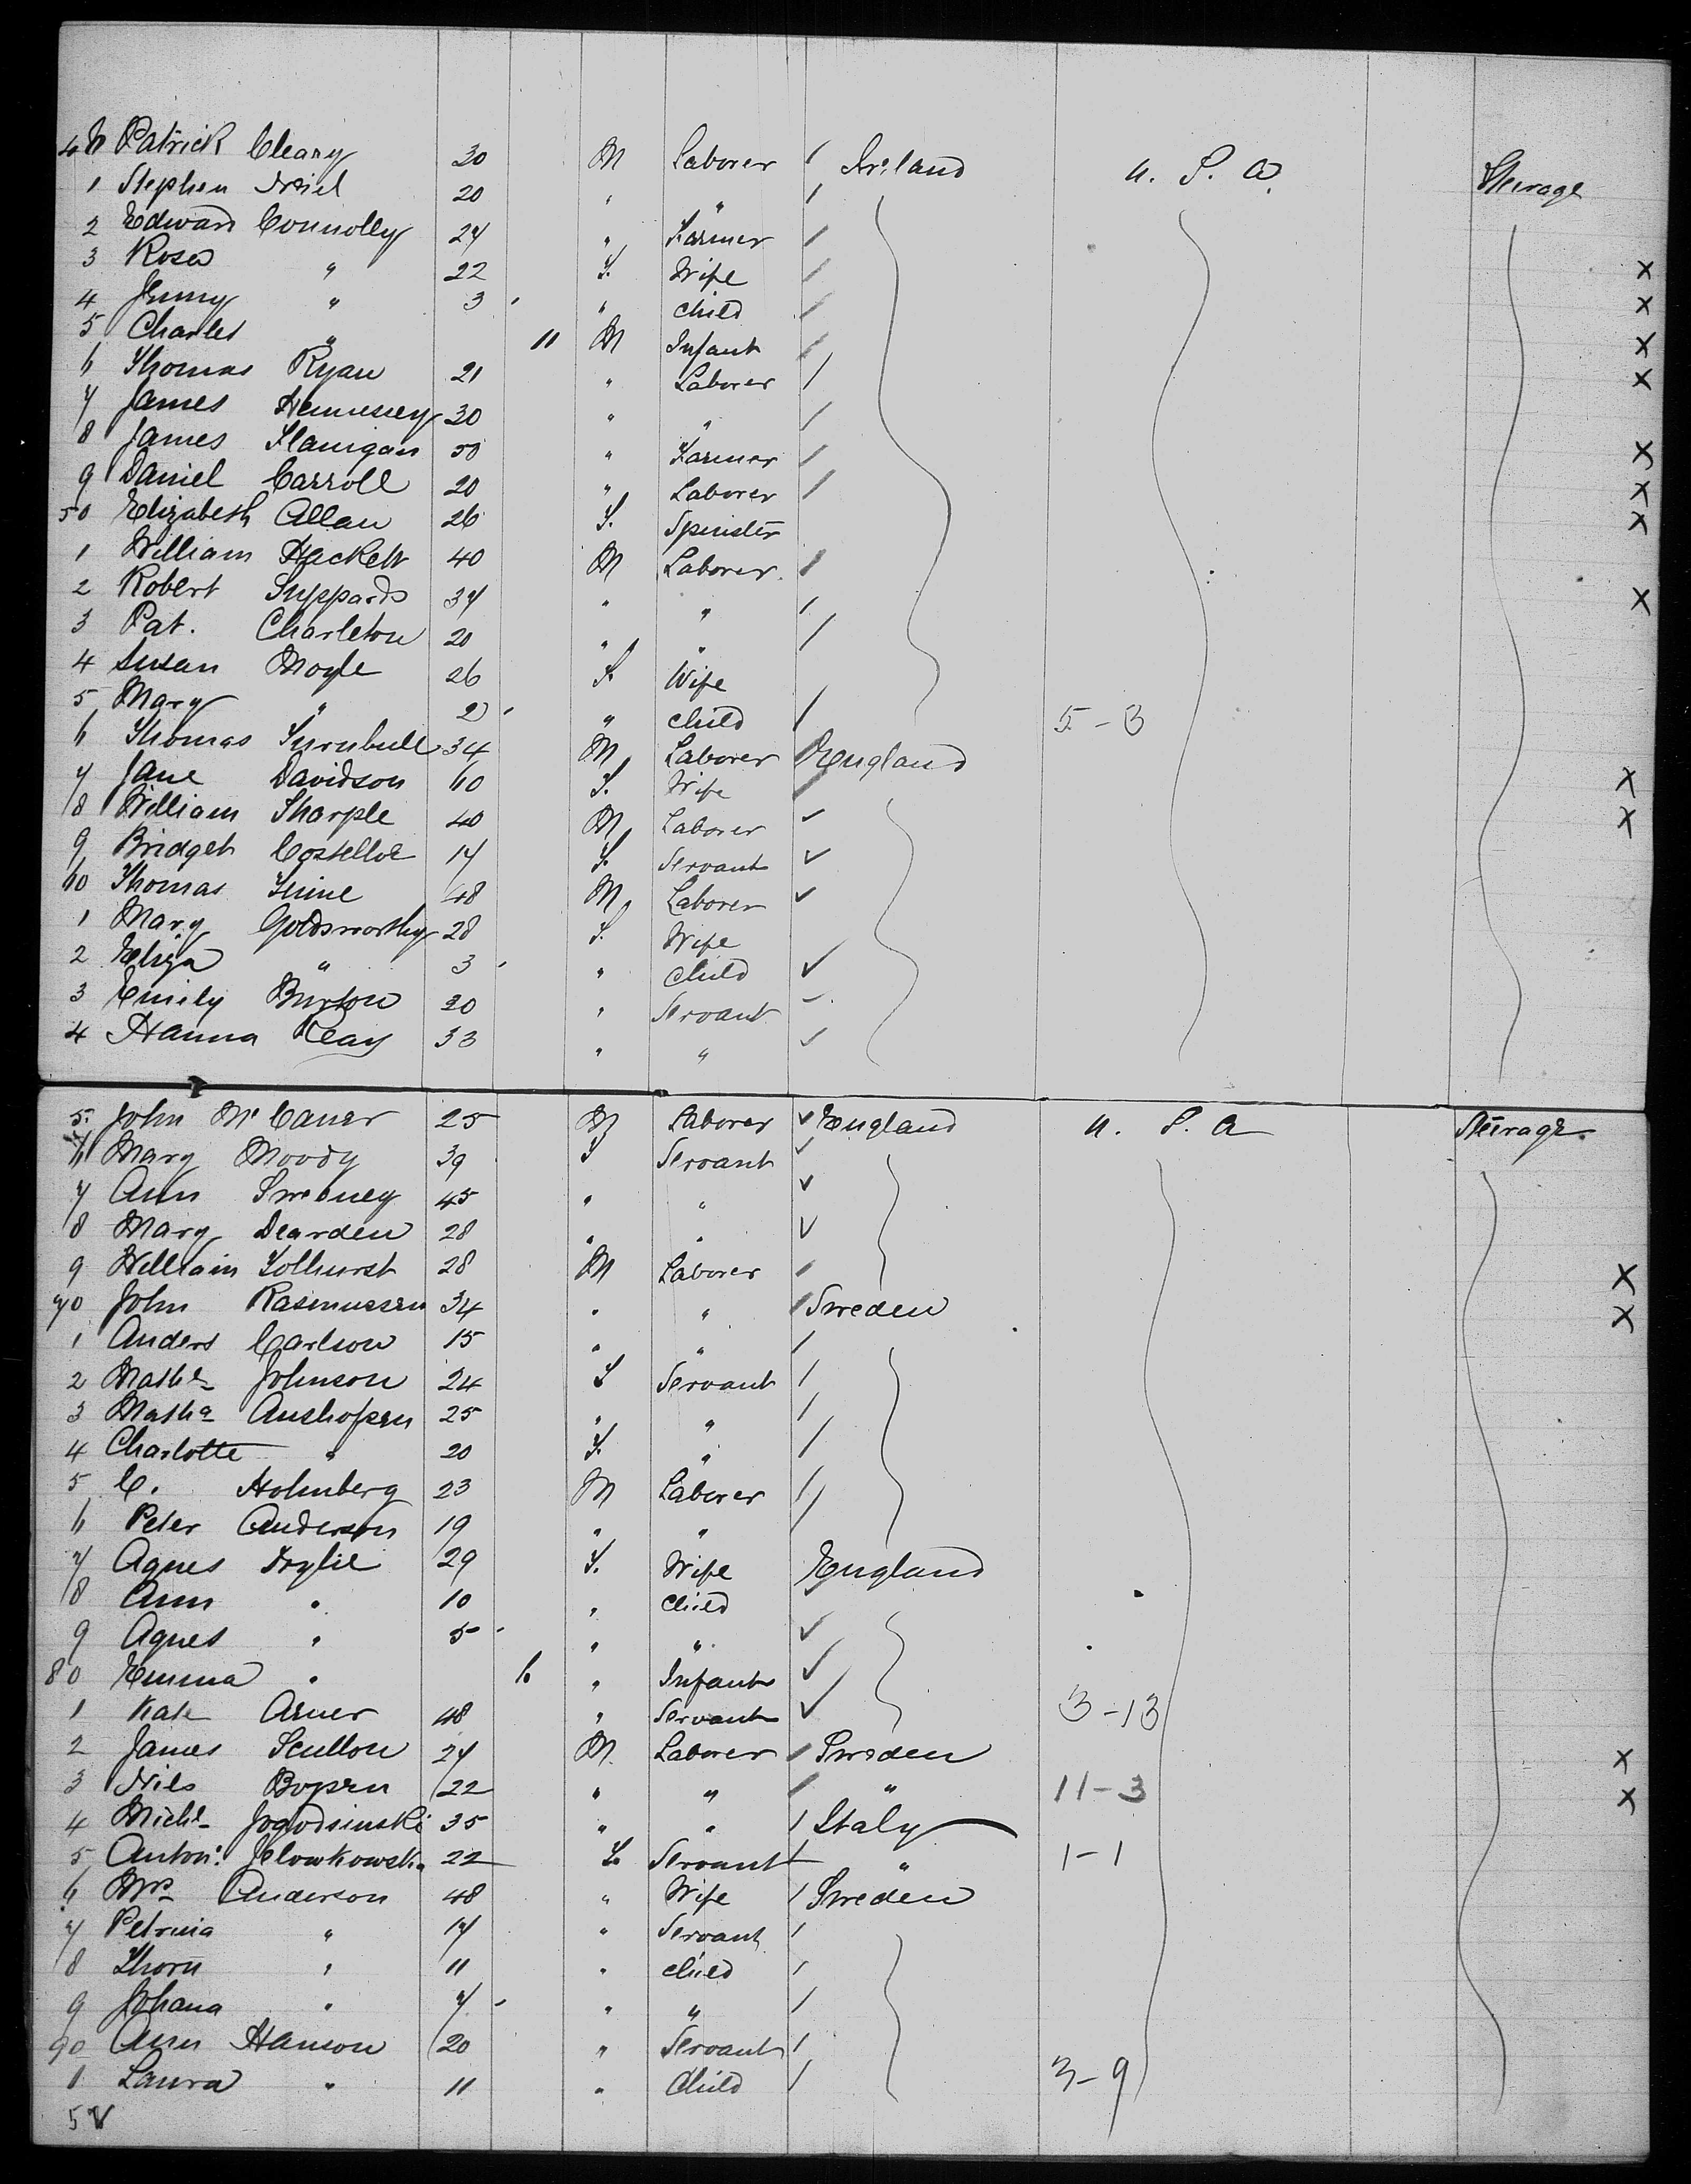 40 Patrick Cleary 30 M Laborer / Ireland U. S. A. Steerage
1 Stephen Neil 20 " " /
2 Edward Connolly 27 " Farmer /
3 Rosa " 22 F. Wife / X
4 Jenny " 3 " child / X
5 Charles " 11 M Infant / X
6 Thomas Ryan 21 " Laborer / X
7 James Hennessey 30 " " /
8 James Flanigan 50 " Farmer / X
9 Daniel Carroll 20 " Laborer / X
50 Elizabeth Allan 26 F. Spinster X
1 William Hackett 40 M Laborer /
2 Robert Suppards 37 " " / X
3 Pat. Charleton 20 " " /
4 Susan Moyle 26 F. Wife
5 Mary " 2 " child / 5-3
6 Thomas Turnbull 34 M Laborer / England
7 Jane Davidson 60 F. Wife / X
8 William Sharple 40 M Laborer ✓ X
9 Bridget Costelloe 17 F. Servant ✓
60 Thomas 48 M Laborer ✓
1 Mary Goldsworthy 28 F. Wife
2 Eliza " 3 " child ✓
3 Emily Burton 20 " Servant ✓
4 Hanna Keay 33 " " ✓
5 John McCaner 25 M Laborer ✓ England U. S. A Steerage
6 Mary Moody 39 F Servant ✓
7 Ann Sweeney 45 " " ✓
8 Mary Dearden 28 " " ✓
9 William Tolhurst 28 M Laborer / X
70 John Rasmussen 34 " " / Sweden X
1 Anders Carlson 15 " " /
2 Mathe Johnson 24 F Servant /
3 Matha 25 " " /
4 Charlotte " 20 F. " /
5 C. Holmberg 23 M Laborer /
6 Peter Anderson 19 " " /
7 Agnes 29 F. Wife England
8 Ann " 10 " child ✓
9 Agnes " 5 " " ✓
80 Emma " 6 " Infant ✓
1 Kate Arner 48 " Servant ✓ 3-13
2 James Scullon 27 M Laborer / Sweden X
3 Nils 22 " " / " 11-3 X
4 Michl Jogodsinski 35 " " / Italy
5 Anton: Jelowkowska 22 F. Servant / " 1-1
6 Mrs Anderson 48 " Wife / Sweden
7 Petrina " 17 " Servant /
8 Thorn " 11 " child /
9 Johana " 7 " " /
90 Ann Hanson 20 " Servant /
1 Laura " 11 " Child / 3-9
5V